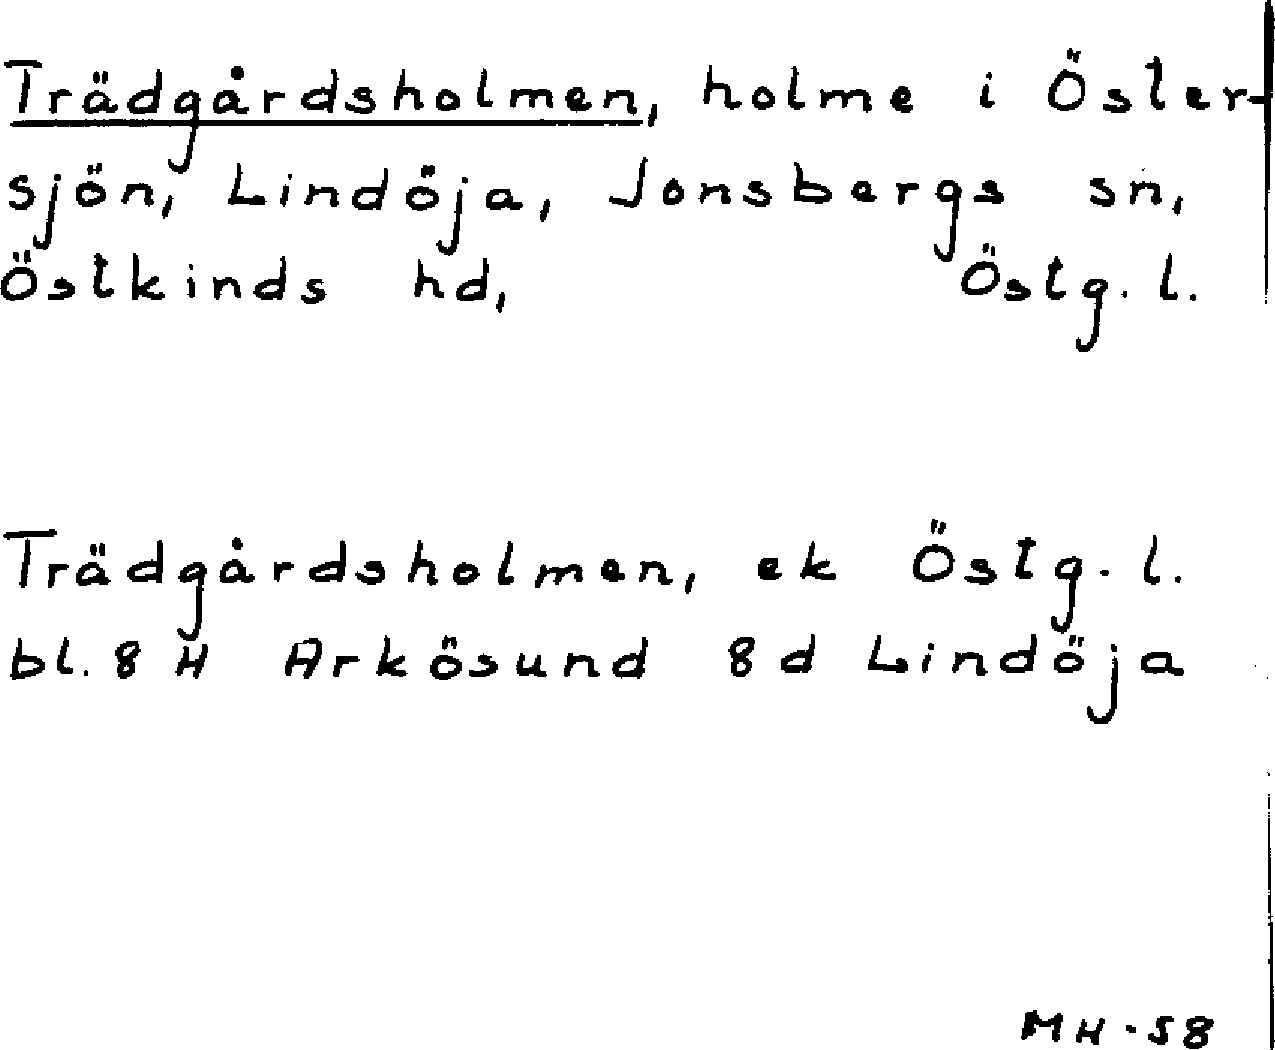 Trädgårdsholmen, holme i Öster-
sjön, Lindöja, Jonsbergs sn,
Östkinds hd, Östg. l.
Trädgårdsholmen, ek Östg. l.
bl. 8 H Arkösund 8 d Lindöja
MH-58